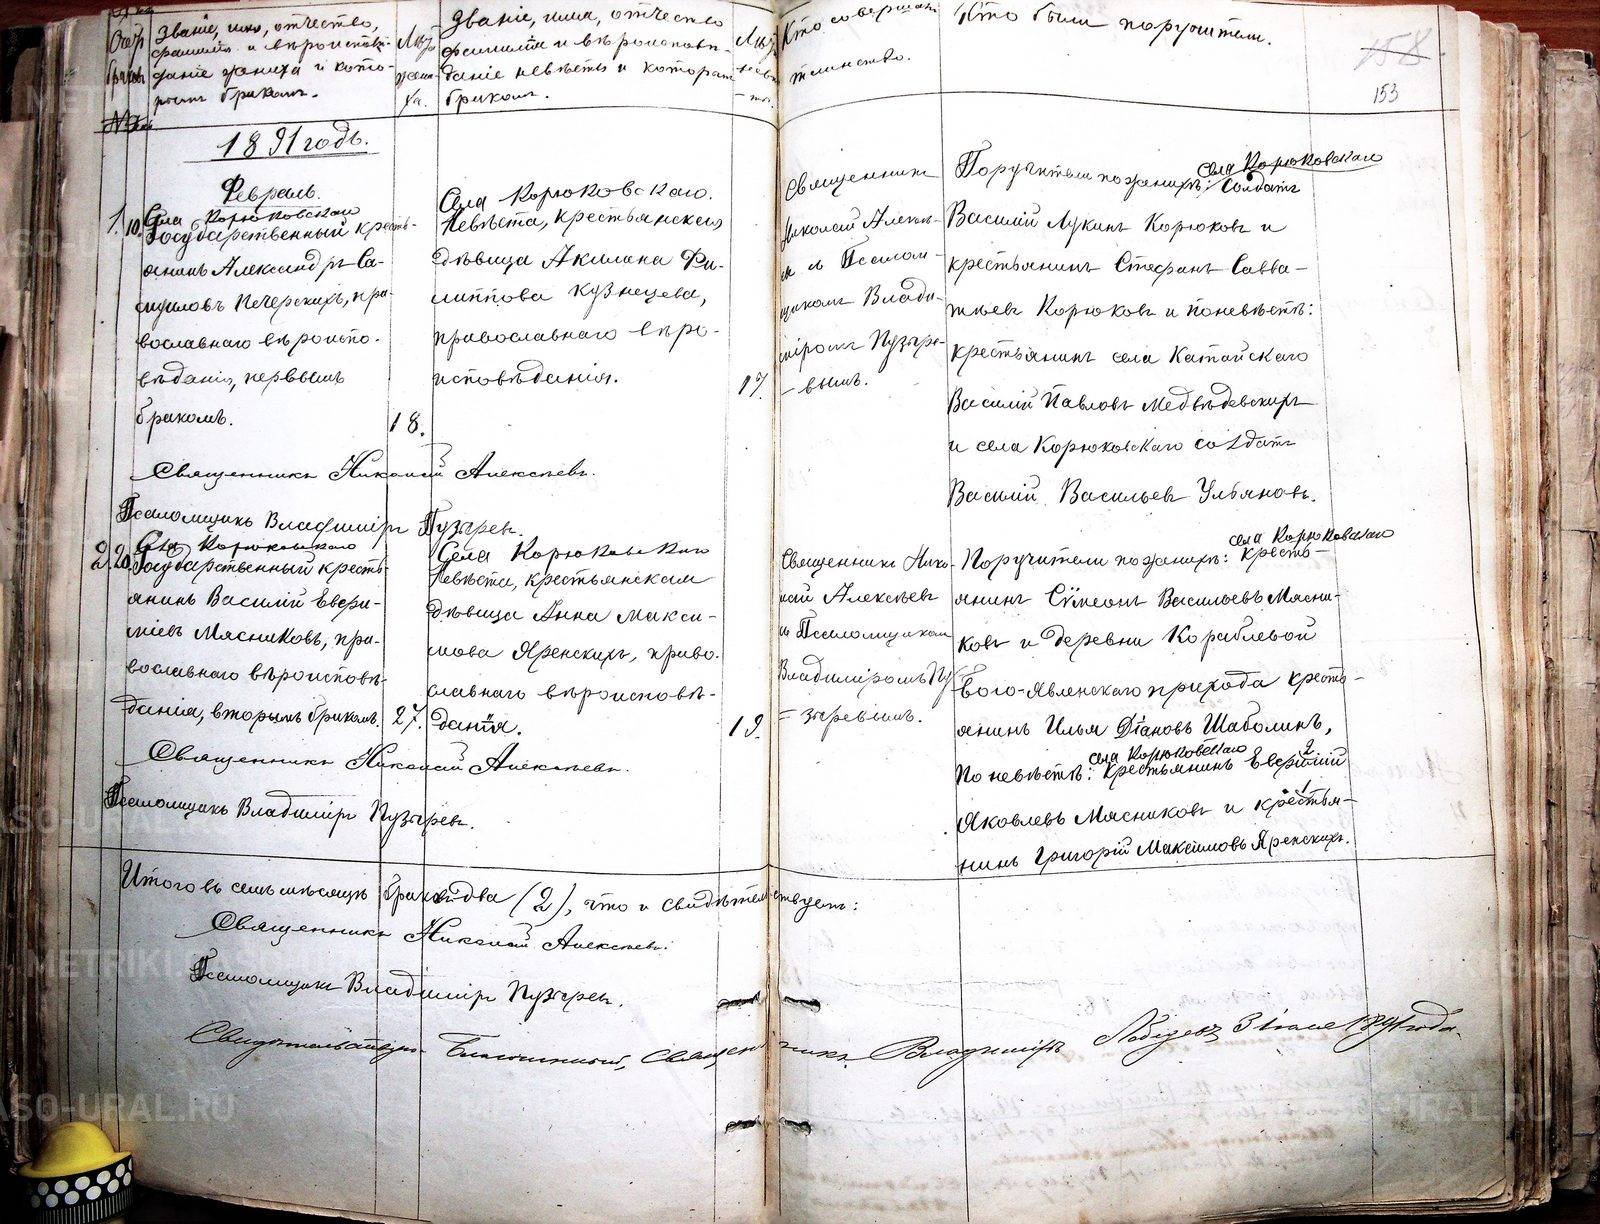 Звание, имя, отчество,
фамилия и вероиспове-
дание жениха и кото-
рымъ бракомъ.
Лѣта
жени-
ха.
Званіе, имя, отчество
фамилія и вѣроиспове-
даніе невѣсты и которымъ
бракомъ.
Лѣта
невѣ-
-сты.
Кто совершалъ
таинство.
Кто были поручители.
158
153
1891 годъ.
Февраль.
1. 10. Села Корюковскаго
Государственный кресть-
янинъ Александръ Са-
муиловъ Печерскихъ, пра-
вославнаго вѣроиспо-
вѣданія, первымъ
бракомъ.
18.
Села Корюковскаго.
Невѣста, крестьянская
дѣвица Акилина Фи-
липпова Кузнецева,
православнаго вѣро-
исповѣданія.
17.
Священникъ
Николай Алексѣ-
евъ съ Псалом-
щикомъ Влади-
міромъ Пузыре-
-вымъ.
Поручители по женихѣ: села Корюковскаго солдатъ
Василій Лукинъ Корюковъ и
крестьянинъ Стефанъ Савва-
тѣевъ Корюковъ и по невѣстѣ:
крестьянинъ села Катайскаго
Василій Павловъ Медвѣдевскихъ
и села Корюковскаго солдатъ
Василій Васильевъ Ульяновъ.
Священникъ Николай Алексѣевъ.
Псаломщикъ Владиміръ Пузыревъ.
2. 20. Села Корюковскаго
Государственный кресть-
янинъ Василій Евфи-
міевъ Мясниковъ, пра-
вославнаго вѣроисповѣ-
данія, вторымъ бракомъ.
27.
Села Корюковскаго
Невѣста, крестьянская
дѣвица Анна Макси-
мова Яренскихъ, право-
славнаго вѣроисповѣ-
данія.
19.
Священникъ Нико-
лай Алексѣевъ
съ Псаломщикомъ
Владиміромъ Пу-
-зыревымъ.
Поручители по женихѣ: села Корюковскаго кресть-
янинъ Сѵмеонъ Васильевъ Мясни-
ковъ и деревни Кораблевой
Бого-явленскаго прихода кресть-
янинъ Илья Діановъ Шаболинъ,
По невѣстѣ: села Корюковскаго крестьянинъ Евфимій
Яковлевъ Мясниковъ и крестья-
нинъ Григорій Максимовъ Яренскихъ.
Священникъ Николай Алексѣевъ.
Псаломщикъ Владиміръ Пузыревъ.
Итого въ семъ мѣсяцѣ браковъ два (2), что и свидѣтельствуемъ:
Священникъ Николай Алексѣевъ.
Псаломщикъ Владиміръ Пузыревъ.
Благочинный, Священникъ Владиміръ 3 Іюля 1891 года.